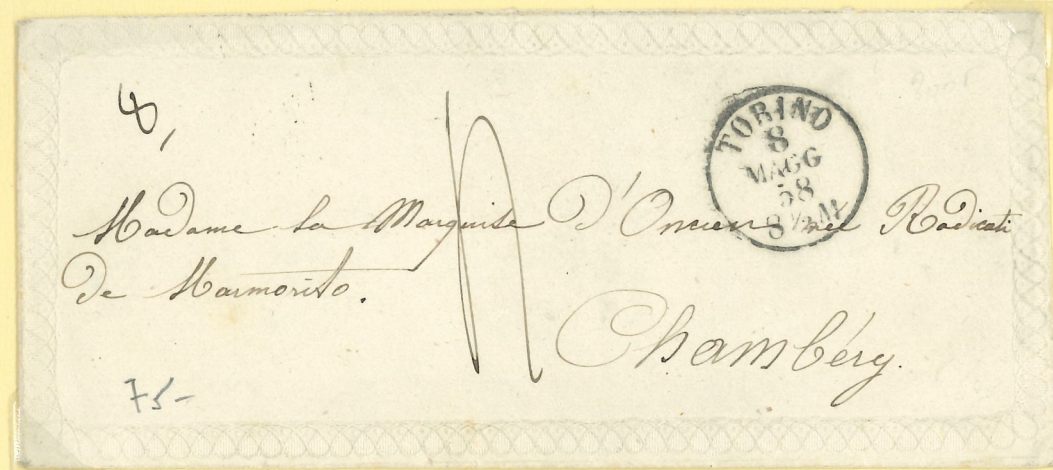 8,
TORINO
8
MAGG
58
8 ½ M
Madame la Marquise D'Oncieu née Radicati
De Marmorito.
Chambéry.
75-